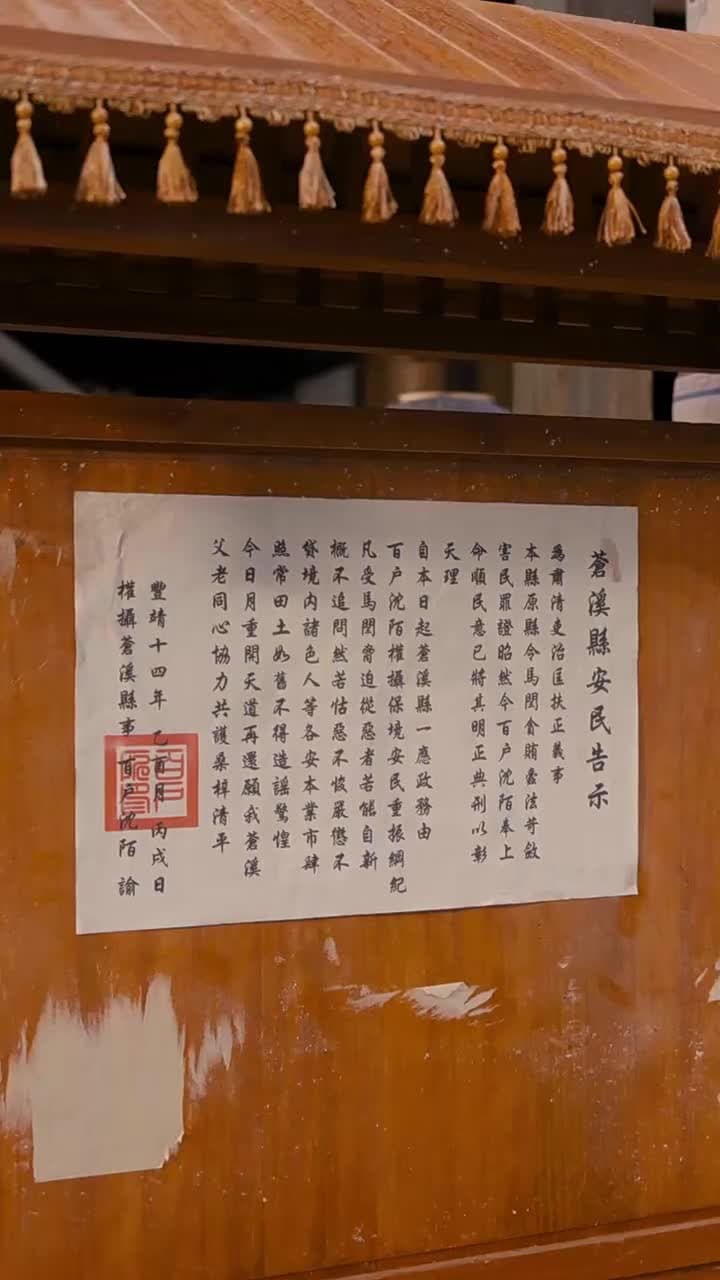 蒼溪縣安民告示
為肅清吏治匡扶正義事
本縣原縣令馬閏貪賄壑法苛斂
害民罪證昭然今百户沈陌奉上
命順民意已將其明正典刑以彰
天理
自本日起蒼溪縣一應政務由
百户沈陌權攝保境安民重振綱紀
凡受馬閏脅迫從惡者若能自新
概不追問然若怙惡不悛嚴懲不
貸境内諸色人等各安本業市肆
照常田土如舊不得造謠驚惶
今日月重開天道再還願我蒼溪
父老同心協力共護桑梓清平
豐靖十四年 乙酉月 丙戌日
權攝蒼溪縣事百户沈陌 諭